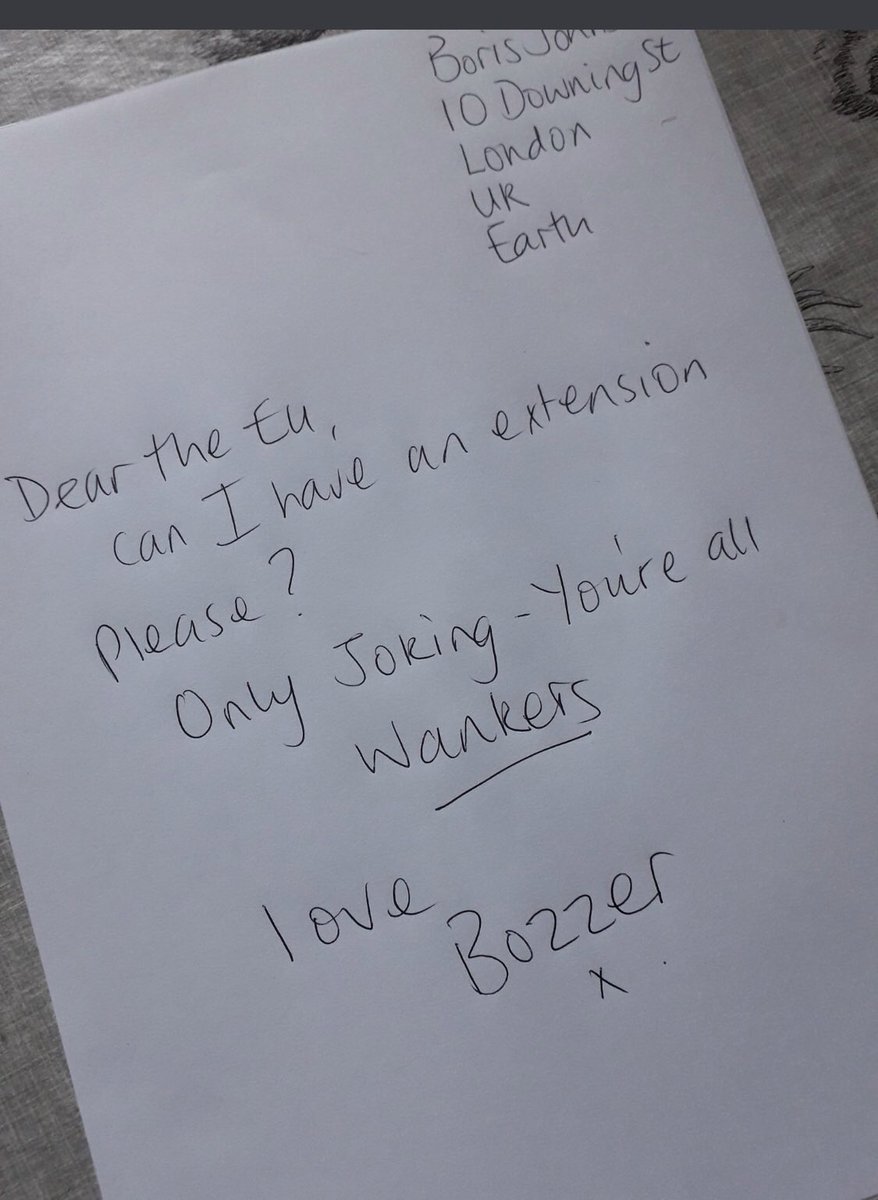 Boris
10 Downing St
London
UK
Earth
Dear the Eu,
can I have an extension
please?
Only Joking - You're all
Wankers
love
Bozzer
x